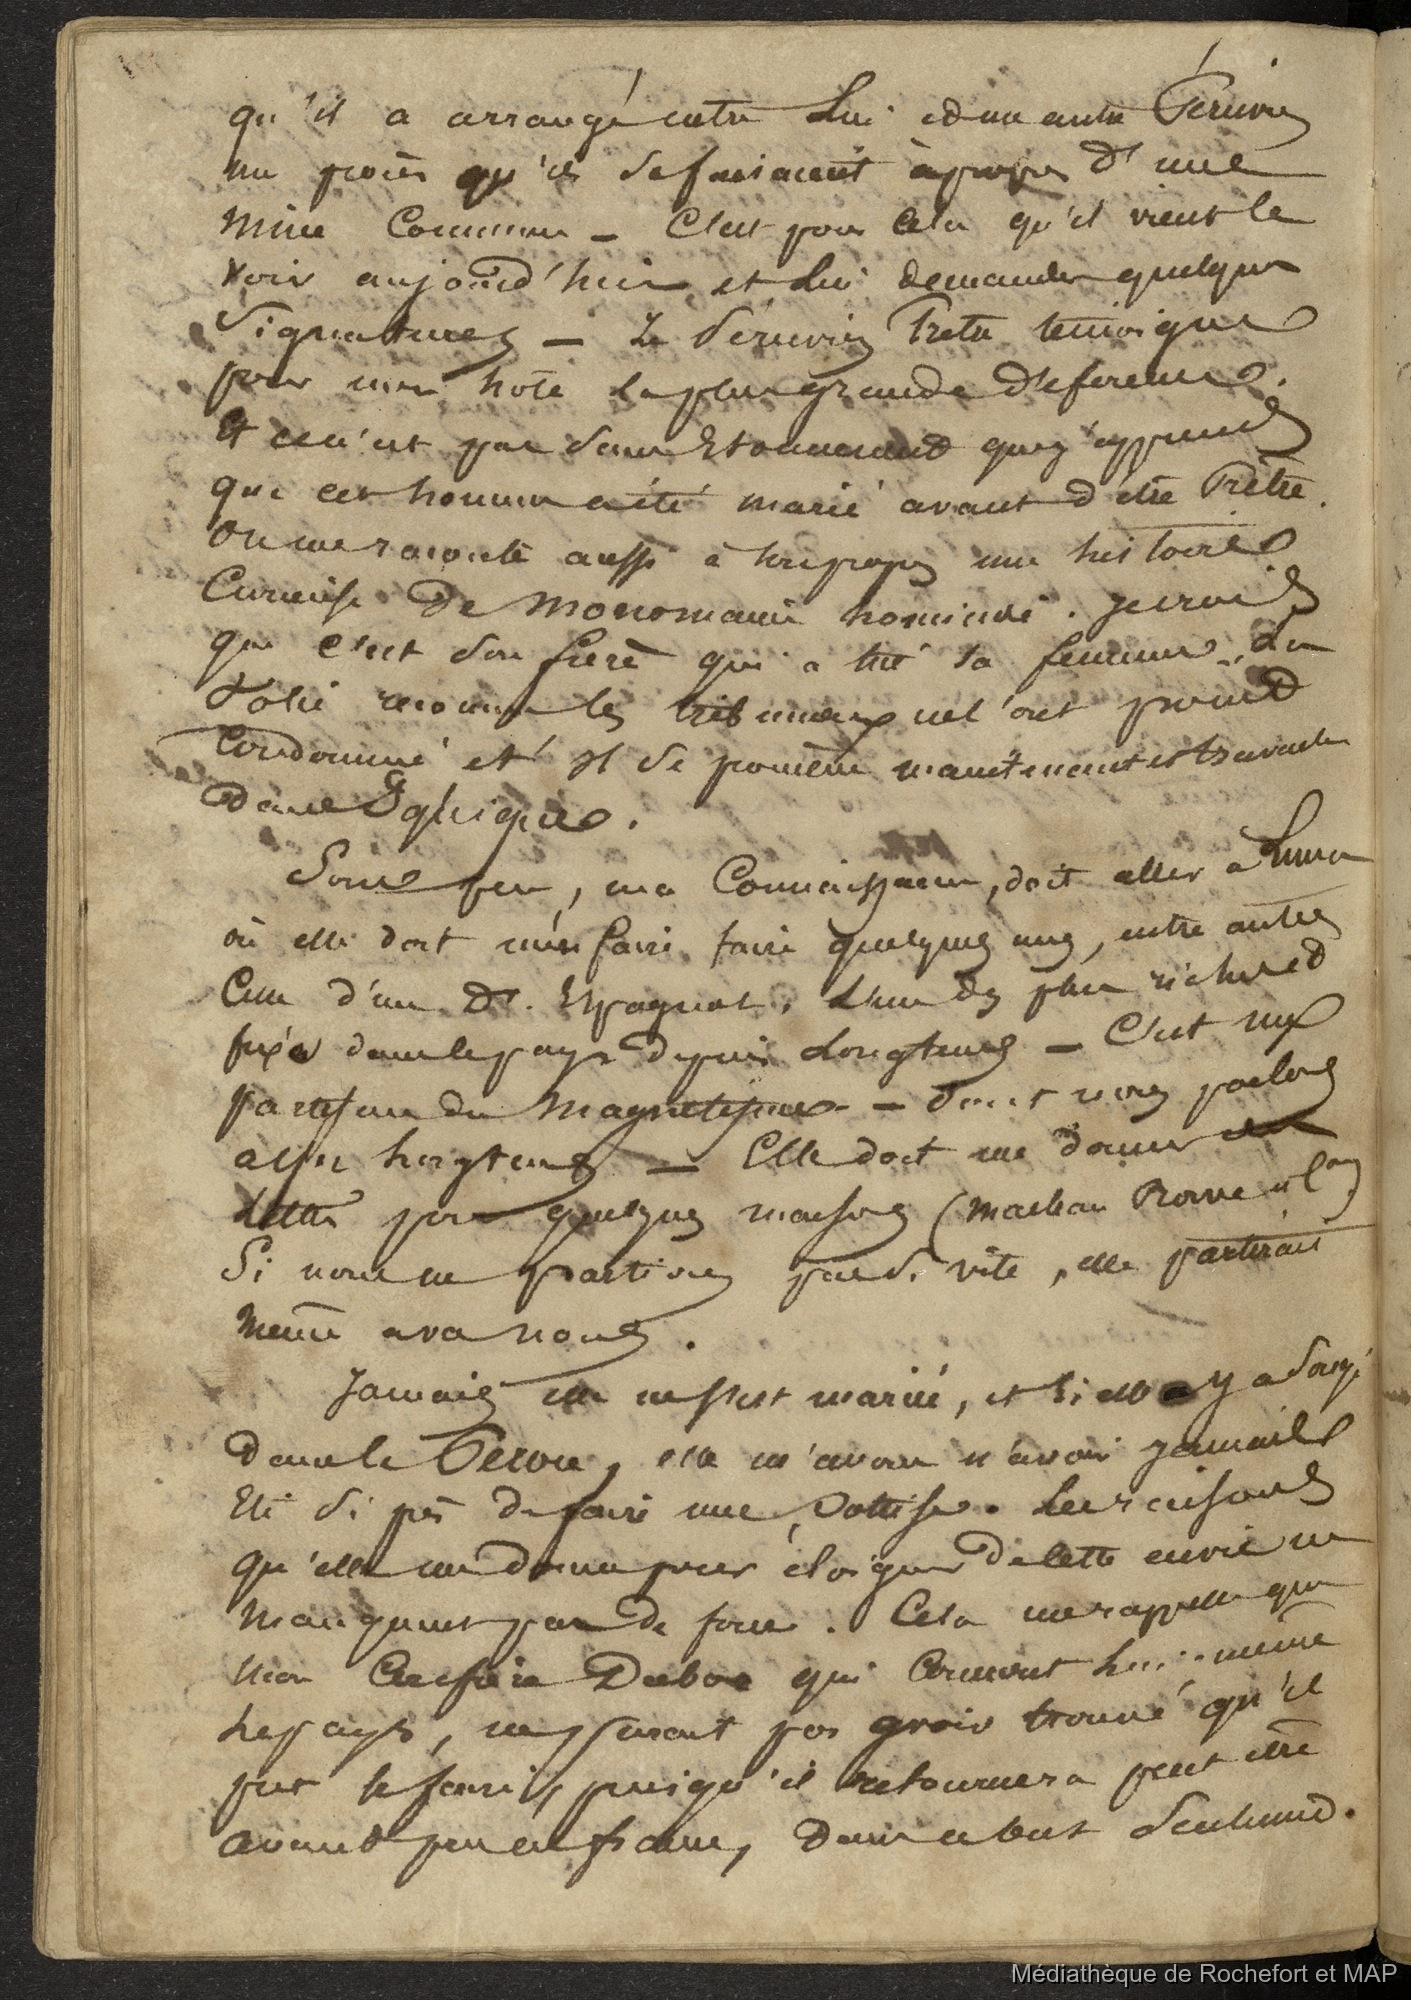 qu'il a arrangé entre lui et un autre Péruvien
un procès qu'ils se faisaient à propos d'une
mine commune - C'est pour cela qu'il vient le
voir aujourd'hui et lui demander quelques
signatures - Le Péruvien Prêtre témoigne
pour mon hôte la plus grande déference.
Et ce n'est pas sans étonnement que j'apprends
que cet homme a été marié avant d'être Prêtre.
On me raconte aussi à son propos une histoire
curieuse de monomanie homicide. je crois
que c'est son frère qui a tué sa femme, la
folie reconnue les tribunaux ne l'ont point
condamné et il se promène maintenant et travaille
dans
Sous peu, ma Connaissance, doit aller à Lima
où elle doit m'en faire faire quelques unes, entre autres
celle d'un Dr. Espagnol, l'un des plus riches et
fixé dans le pays depuis longtemps - C'est un
partisan du magnétisme - dont nous parlons
assez longtemps - Elle doit me donner des
lettres pour quelques maisons (
Si nous ne partions pas si vite, elle partirait
même avec nous.
Jamais elle ne s'est mariée, et si elle y a songé
dans le Pérou, elle m'avoue n'avoir jamais
été si près de faire une sottise. Les raisons
qu'elle me donne pour s'éloigner de cette envie ne
manquent pas de force. Cela me rappelle que
mon Confrère Duboc qui connait lui-même
le pays, ne pensait pas avoir trouvé qu'il
put le faire, puisqu'il retournera peut être
avant peu en france, dans ce but seulement.
Médiathèque de Rochefort et MAP